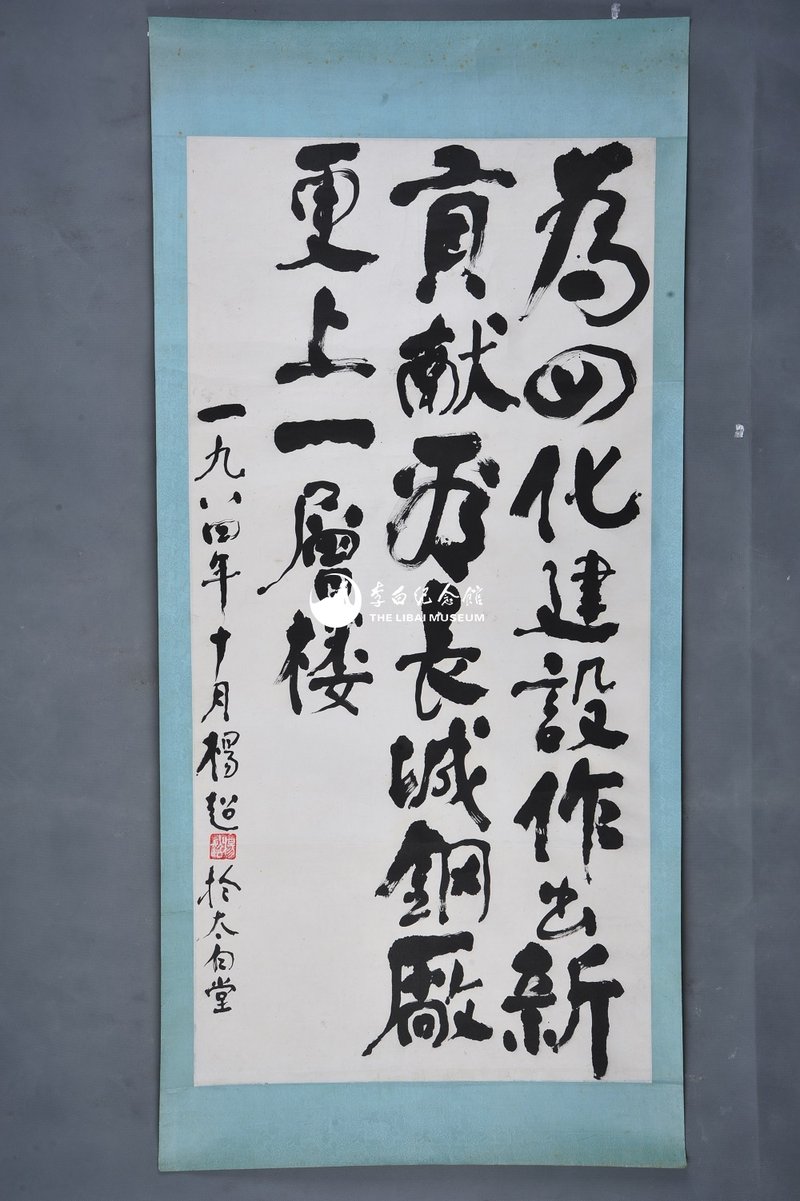 為四化建設作出新
貢献長城鋼廠
更上一層楼
一九八四年十月楊超於太白堂
李白纪念館
THE LIBAI MUSEUM